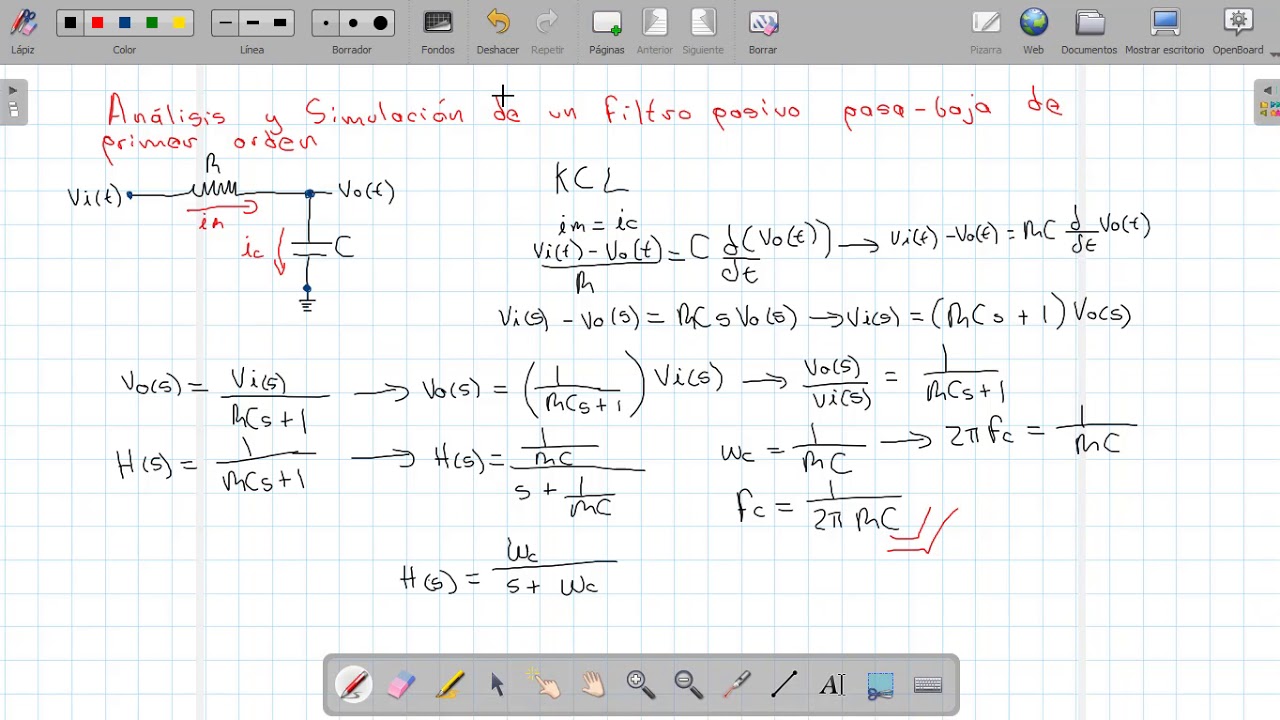 Lápiz Color Línea Borrador Fondos Deshacer Repetir Páginas Anterior Siguiente Borrar Pizarra Web Documentos Mostrar escritorio OpenBoard
Análisis y Simulación de un filtro pasivo pasa-baja de
primer orden
R
Vi(t) Vo(t)
iR
ic C
KCL
iR = ic
(Vi(t) - Vo(t))/R = C d(Vo(t))/dt → Vi(t) - Vo(t) = RC d/dt Vo(t)
Vi(s) - Vo(s) = RCs Vo(s) → Vi(s) = (RCs + 1) Vo(s)
Vo(s) = Vi(s)/(RCs + 1) → Vo(s) = (1/(RCs + 1)) Vi(s) → Vo(s)/Vi(s) = 1/(RCs + 1)
H(s) = 1/(RCs + 1) → H(s) = (1/RC)/(s + 1/RC)
wc = 1/RC → 2π fc = 1/RC
fc = 1/(2π RC)
H(s) = wc/(s + wc)
AI